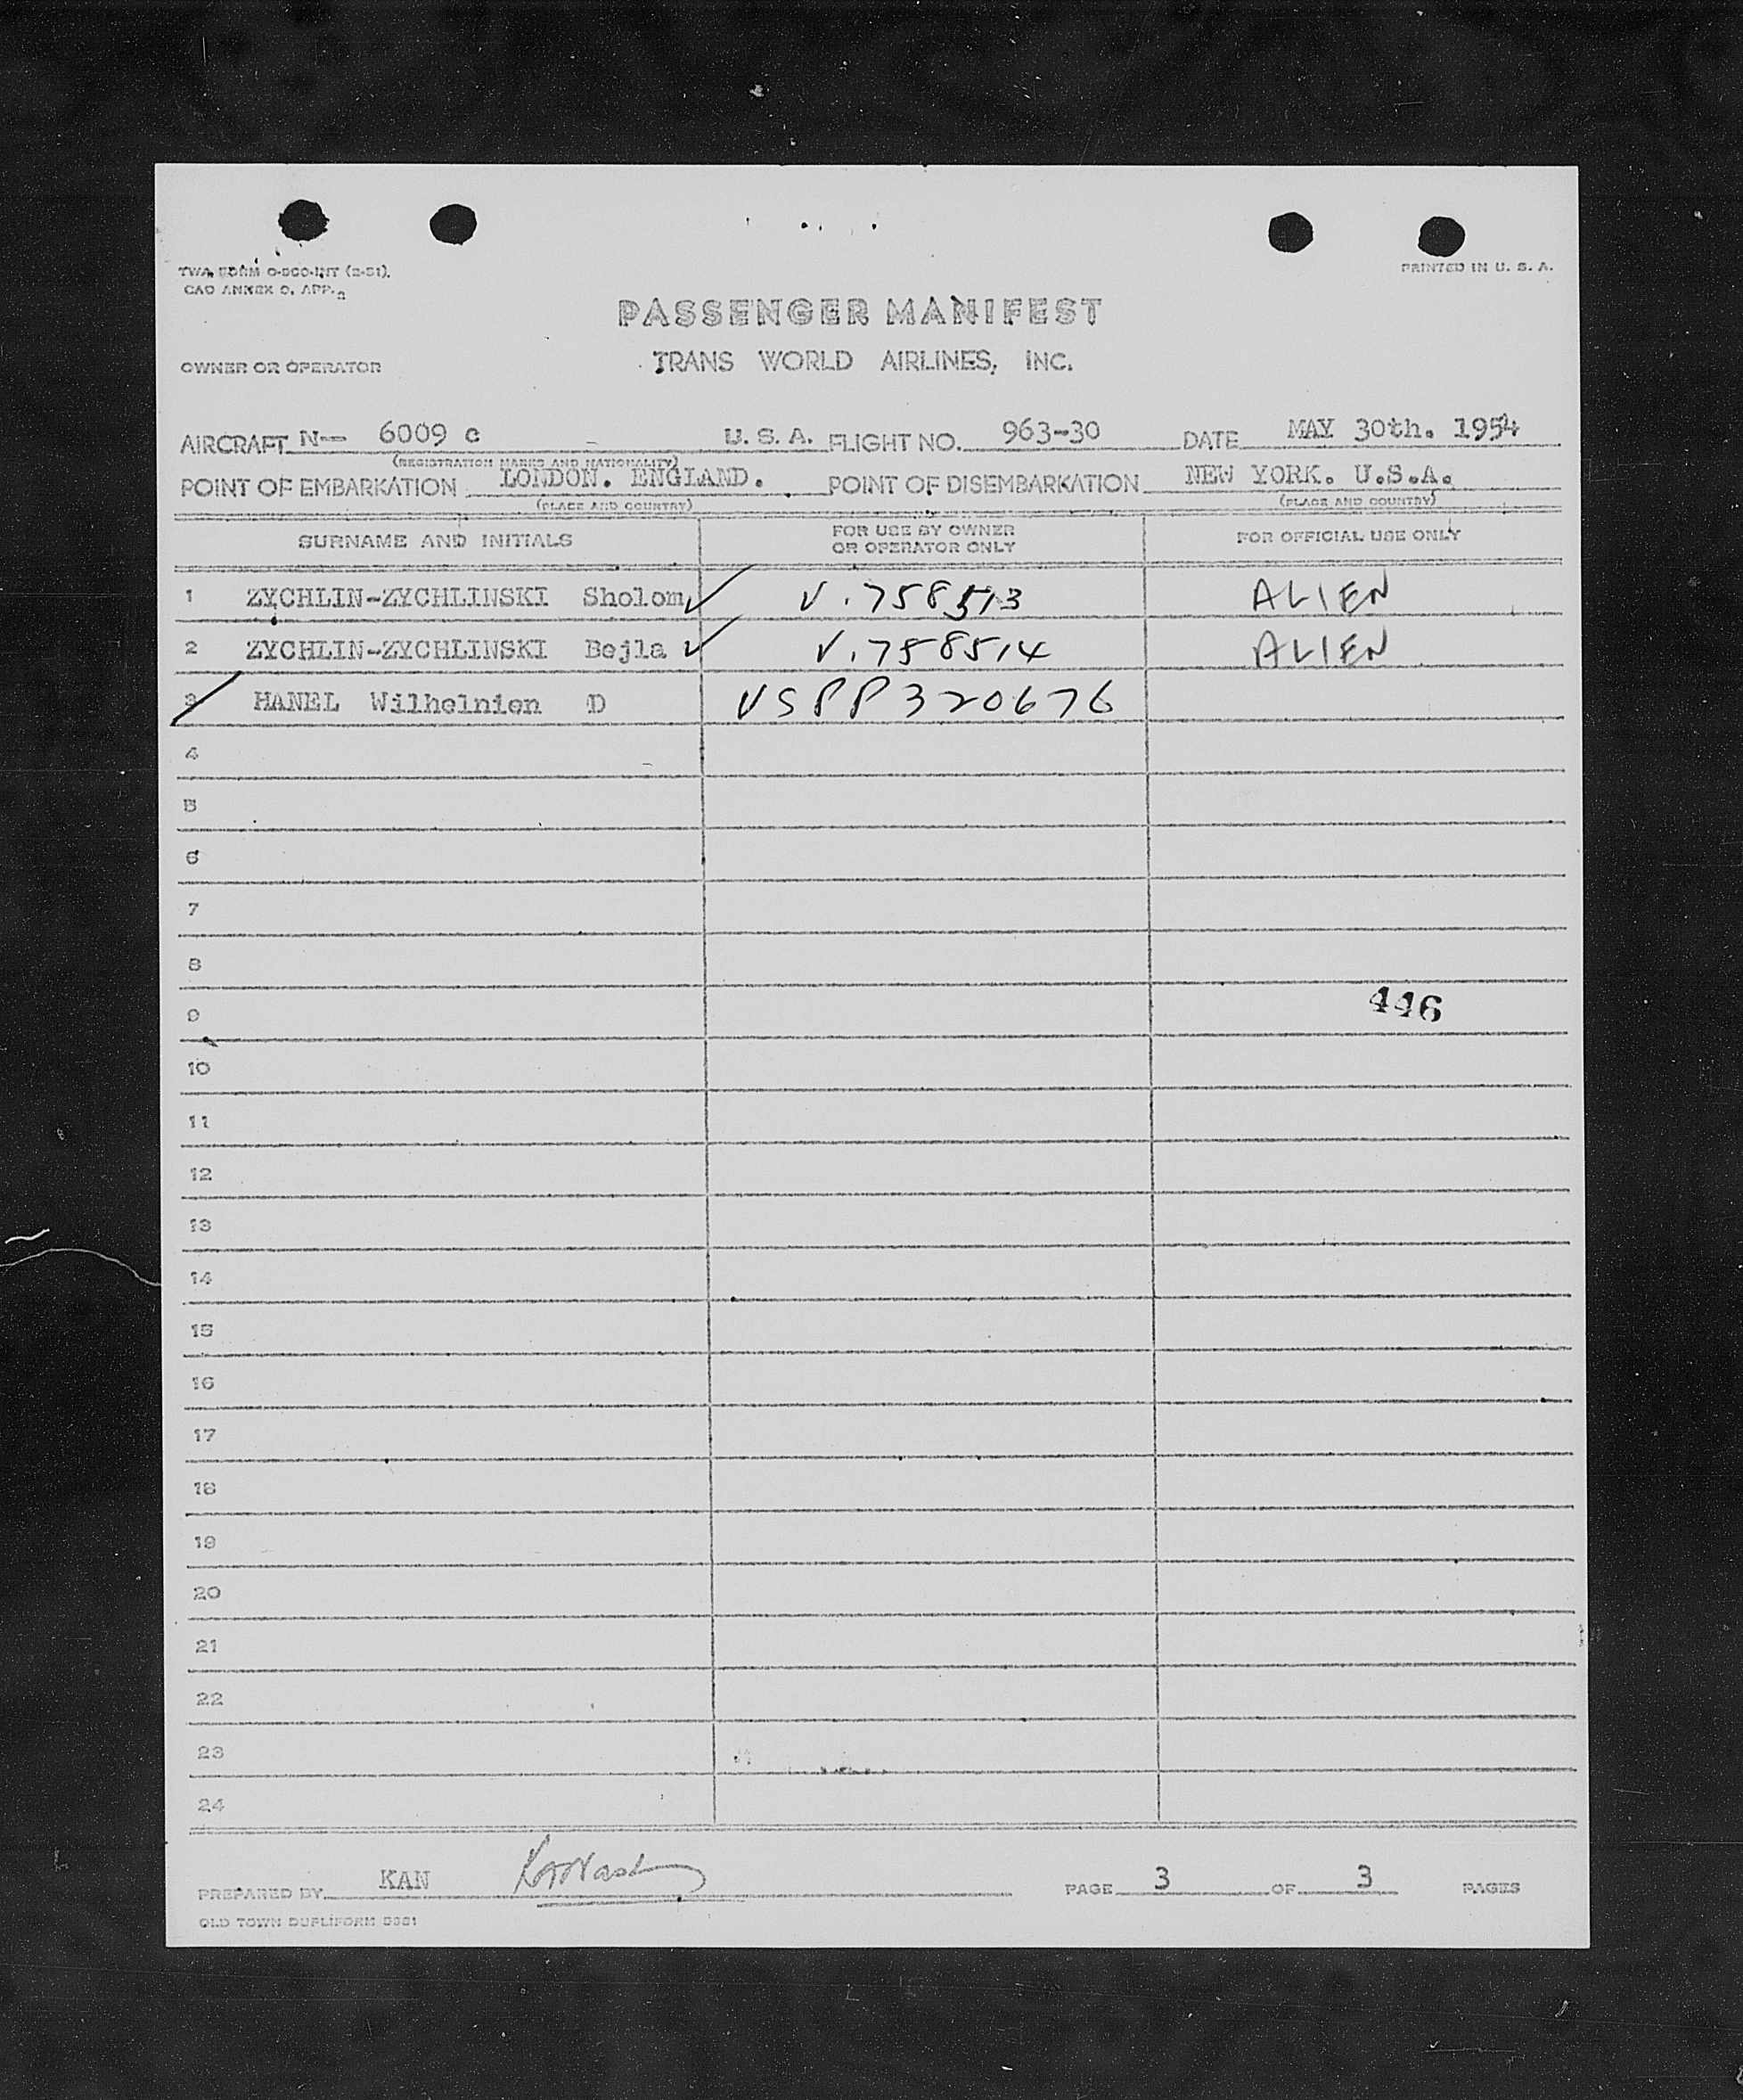 TWA FORM O-200-INT (2-51).
PRINTED IN U. S. A.
CAO ANNEX 9, APP. 2
PASSENGER MANIFEST
OWNER OR OPERATOR TRANS WORLD AIRLINES, INC.
AIRCRAFT N-- 6009 c - U. S. A. FLIGHT NO. 963-30 DATE MAY 30th. 1954
(REGISTRATION MARKS AND NATIONALITY)
POINT OF EMBARKATION LONDON. ENGLAND. POINT OF DISEMBARKATION NEW YORK. U.S.A.
(PLACE AND COUNTRY) (PLACE AND COUNTRY)
SURNAME AND INITIALS FOR USE BY OWNER OR OPERATOR ONLY FOR OFFICIAL USE ONLY
1 ZYCHLIN-ZYCHLINSKI Sholom V.758513 ALIEN
2 ZYCHLIN-ZYCHLINSKI Bejla V.758514 ALIEN
3 HANEL Wilhelnien D USPP320676
4
5
6
7
8
9 446
10
11
12
13
14
15
16
17
18
19
20
21
22
23
24
PREPARED BY KAN PAGE 3 OF 3 PAGES
OLD TOWN DUPLIFORM